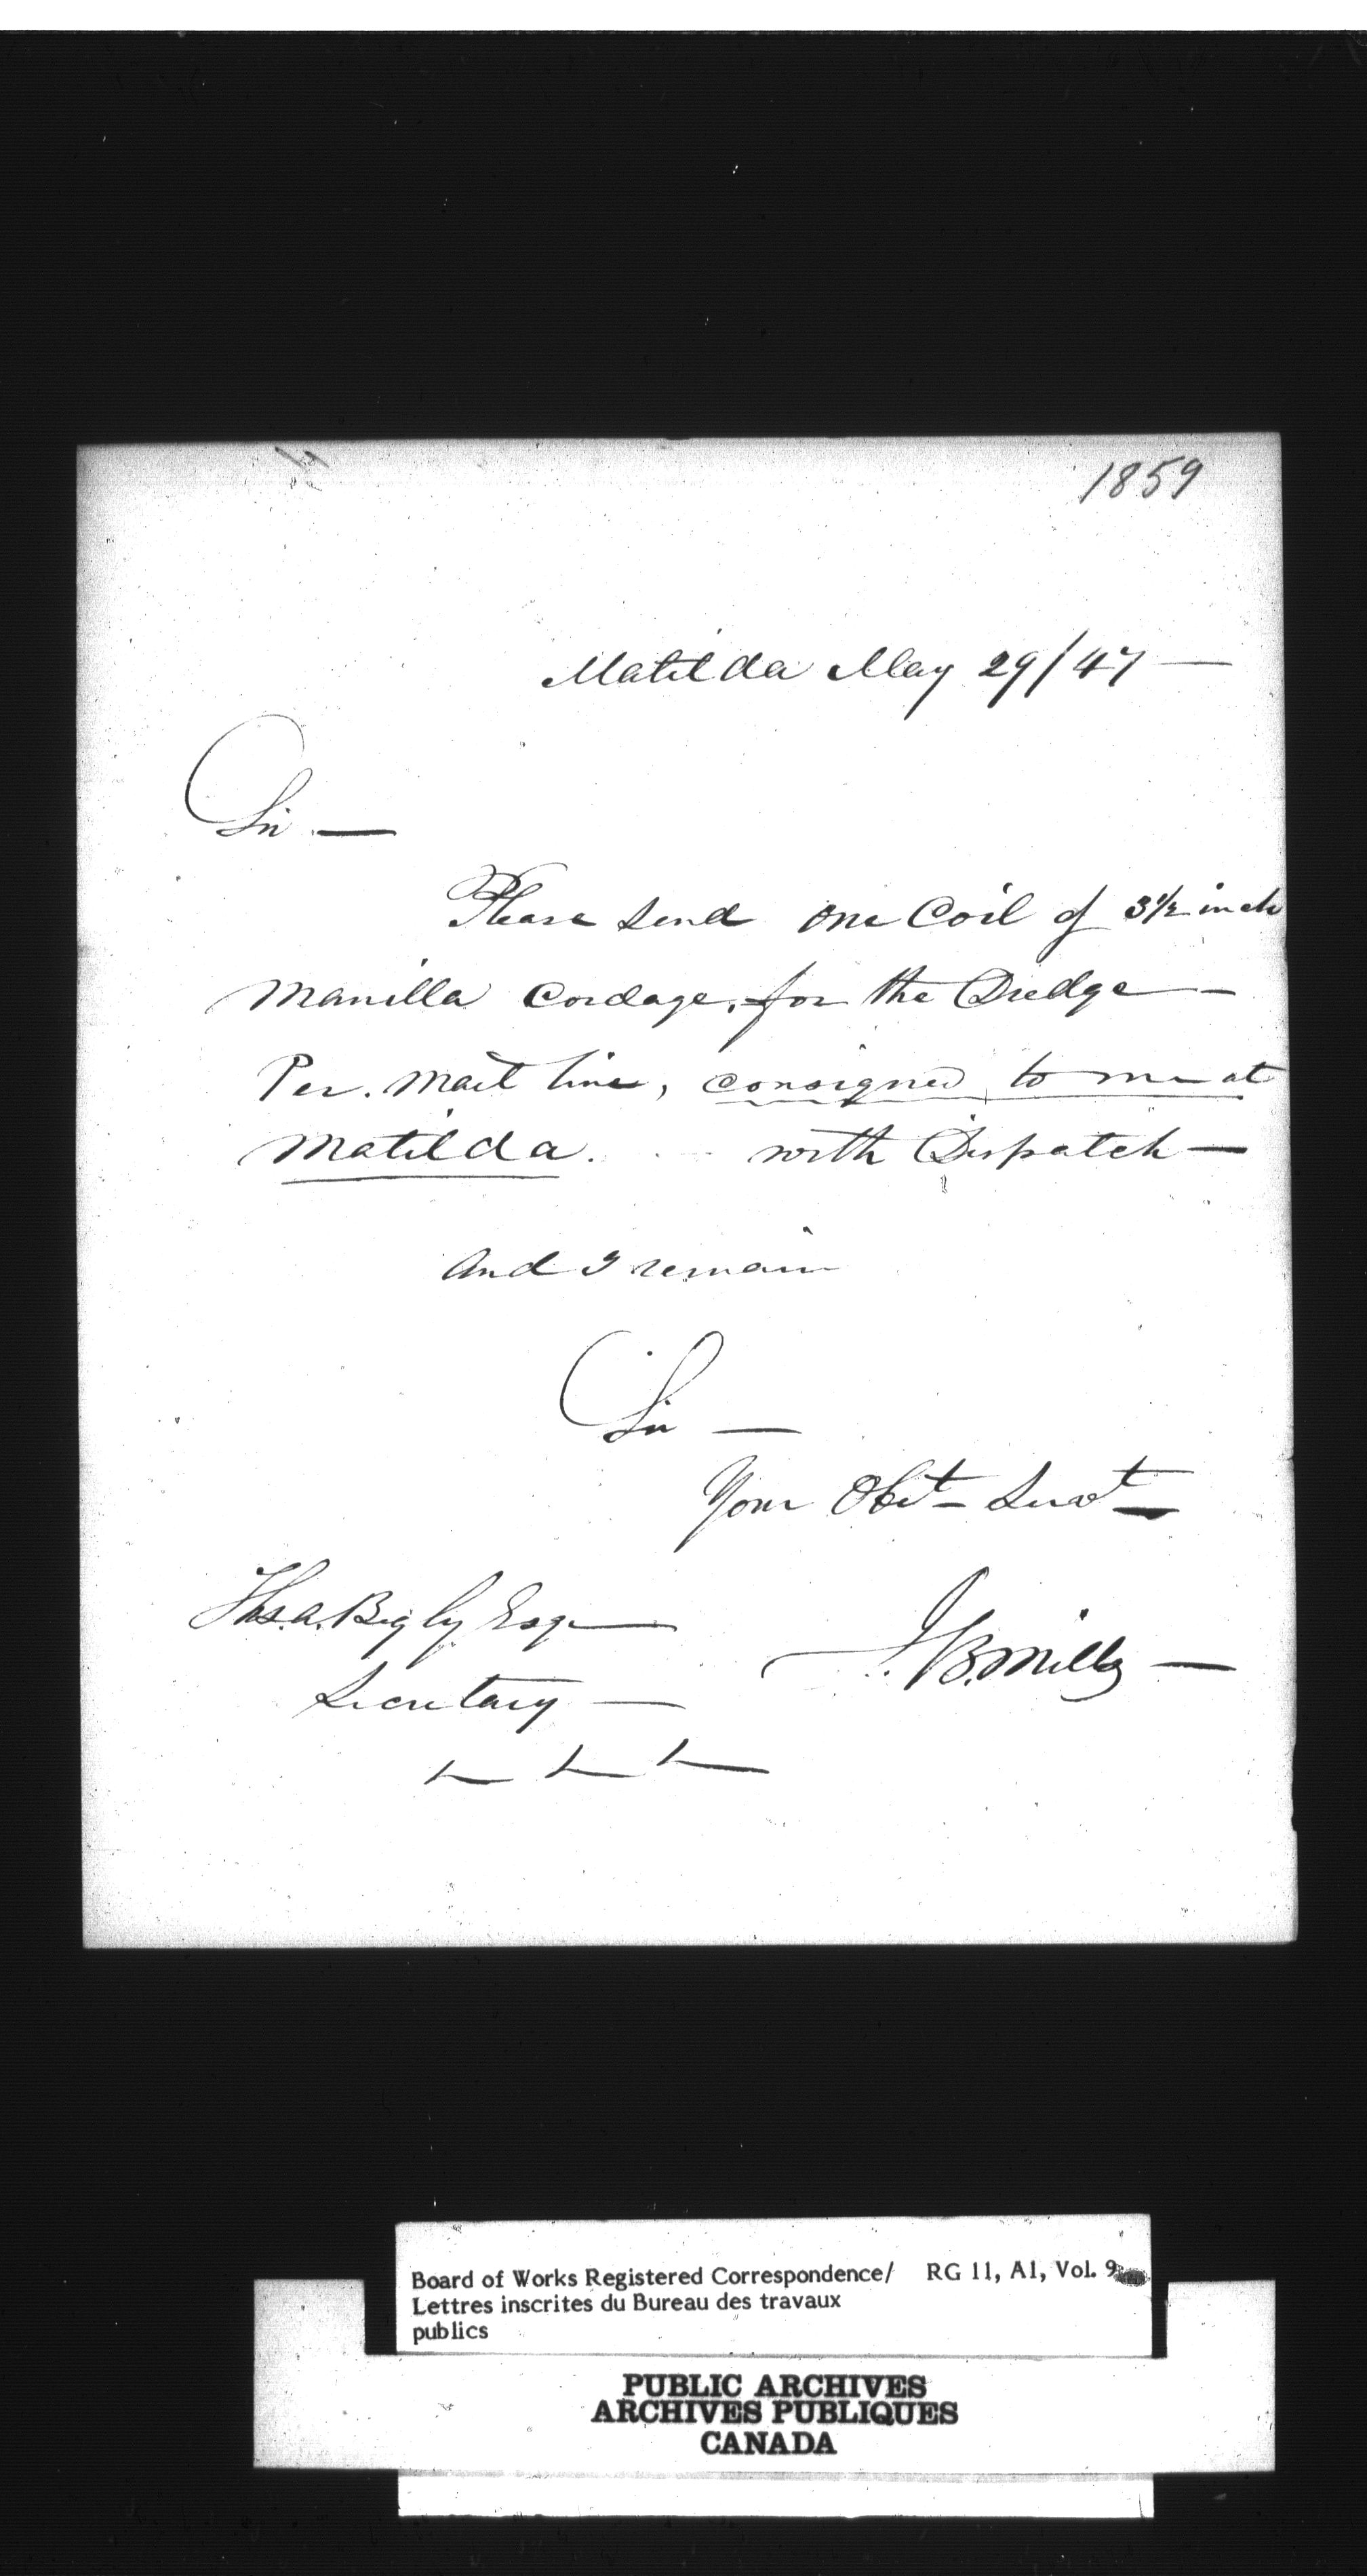 1859
Matilda May 29/47 —
Sir —
Please Send One Coil of 3½ inch
Manilla Cordage, for the Dredge —
Per. Mail line, consigned to me at
Matilda. with Dispatch —
And I remain
Sir —
Your Obt - Servt —
Ths. A. Bigly Esqr —
J. B. Mills —
Secretary —
Board of Works Registered Correspondence/ RG 11, A1, Vol. 9
Lettres inscrites du Bureau des travaux
publics
PUBLIC ARCHIVES
ARCHIVES PUBLIQUES
CANADA